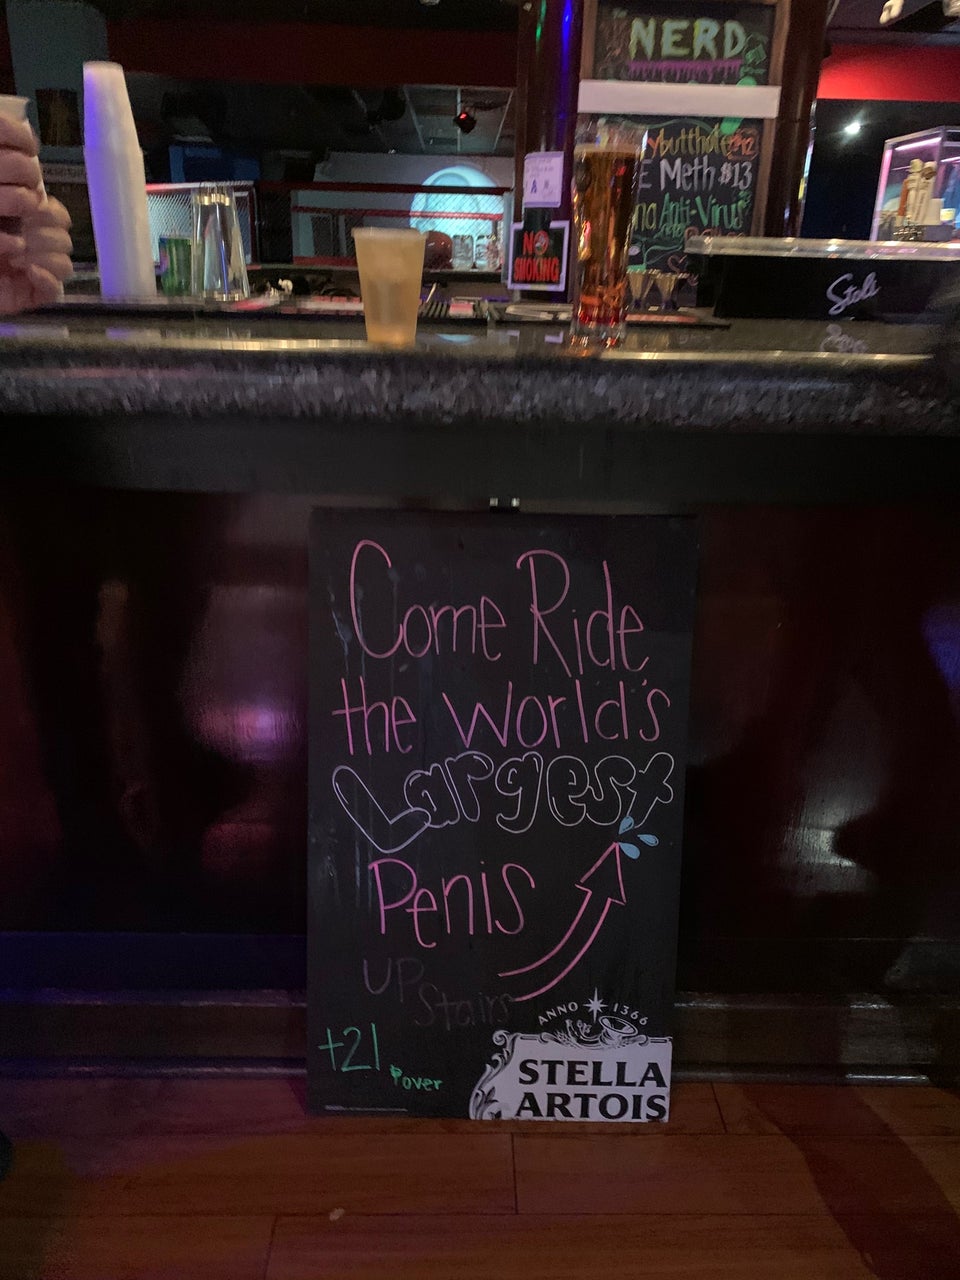 NERD
Meth $13
Anti-Virus
NO
SMOKING
Stoli
Come Ride
the world's
Largest
Penis
UP
Stairs
+21
& over
ANNO 1366
STELLA
ARTOIS